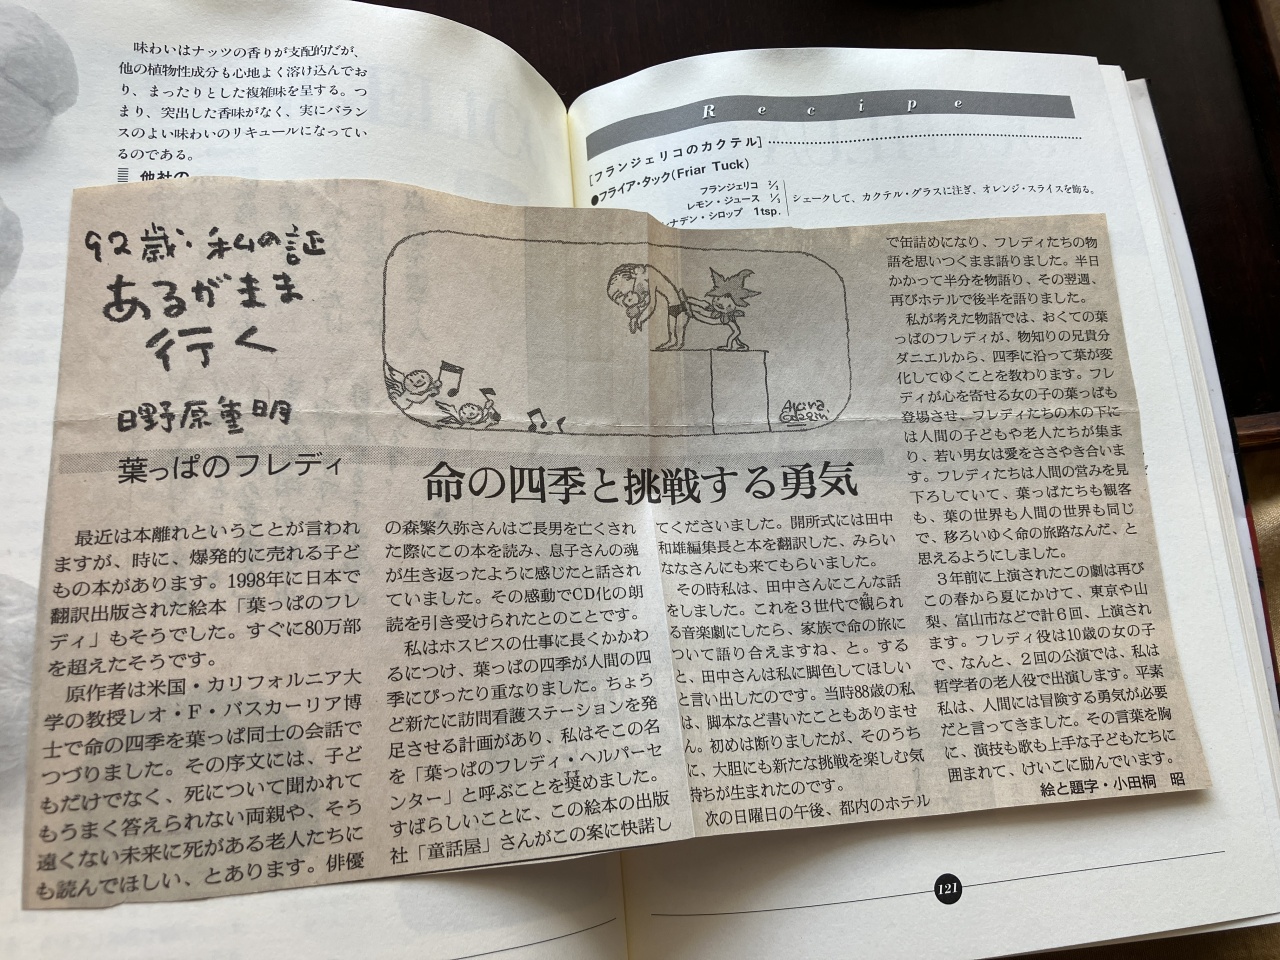 味わいはナッツの香りが支配的だが、
他の植物性成分も心地よく溶け込んでお
り、まったりとした複雑味を呈する。つ
まり、突出した香味がなく、実にバラン
スのよい味わいのリキュールになってい
るのである。
他社の
Recipe
[フランジェリコのカクテル]
●フライア・タック(Friar Tuck)
フランジェリコ 2/3
レモン・ジュース 1/3
ナデン・シロップ 1tsp.
シェークして、カクテル・グラスに注ぎ、オレンジ・スライスを飾る。
92歳・私の証
あるがまま
行く
日野原重明
葉っぱのフレディ
命の四季と挑戦する勇気
最近は本離れということが言われ
ますが、時に、爆発的に売れる子ど
もの本があります。1998年に日本で
翻訳出版された絵本「葉っぱのフレ
ディ」もそうでした。すぐに80万部
を超えたそうです。
原作者は米国・カリフォルニア大
学の教授レオ・F・バスカーリア博
士で命の四季を葉っぱ同士の会話で
つづりました。その序文には、子ど
もだけでなく、死について聞かれて
もうまく答えられない両親や、そう
遠くない未来に死がある老人たちに
も読んでほしい、とあります。俳優
の森繁久弥さんはご長男を亡くされ
た際にこの本を読み、息子さんの魂
が生き返ったように感じたと話され
ていました。その感動でCD化の朗
読を引き受けられたとのことです。
私はホスピスの仕事に長くかかわ
るにつけ、葉っぱの四季が人間の四
季にぴったり重なりました。ちょう
ど新たに訪問看護ステーションを発
足させる計画があり、私はそこの名
を「葉っぱのフレディ・ヘルパーセ
ンター」と呼ぶことを奨めました。
すばらしいことに、この絵本の出版
社「童話屋」さんがこの案に快諾し
てくださいました。開所式には田中
和雄編集長と本を翻訳した、みらい
ななさんにも来てもらいました。
その時私は、田中さんにこんな話
をしました。これを3世代で観られ
る音楽劇にしたら、家族で命の旅に
ついて語り合えますね、と。する
と、田中さんは私に脚色してほしい
と言い出したのです。当時88歳の私
は、脚本など書いたこともありませ
ん。初めは断りましたが、そのうち
に、大胆にも新たな挑戦を楽しむ気
持ちが生まれたのです。
次の日曜日の午後、都内のホテル
で缶詰めになり、フレディたちの物
語を思いつくまま語りました。半日
かかって半分を物語り、その翌週、
再びホテルで後半を語りました。
私が考えた物語では、おくての葉
っぱのフレディが、物知りの兄貴分
ダニエルから、四季に沿って葉が変
化してゆくことを教わります。フレ
ディが心を寄せる女の子の葉っぱも
登場させ、フレディたちの木の下に
は人間の子どもや老人たちが集ま
り、若い男女は愛をささやき合いま
す。フレディたちは人間の営みを見
下ろしていて、葉っぱたちも観客
も、葉の世界も人間の世界も同じ
で、移ろいゆく命の旅路なんだ、と
思えるようにしました。
3年前に上演されたこの劇は再び
この春から夏にかけて、東京や山
梨、富山市などで計6回、上演され
ます。フレディ役は10歳の女の子
で、なんと、2回の公演では、私は
哲学者の老人役で出演します。平素
私は、人間には冒険する勇気が必要
だと言ってきました。その言葉を胸
に、演技も歌も上手な子どもたちに
囲まれて、けいこに励んでいます。
絵と題字・小田桐 昭
121